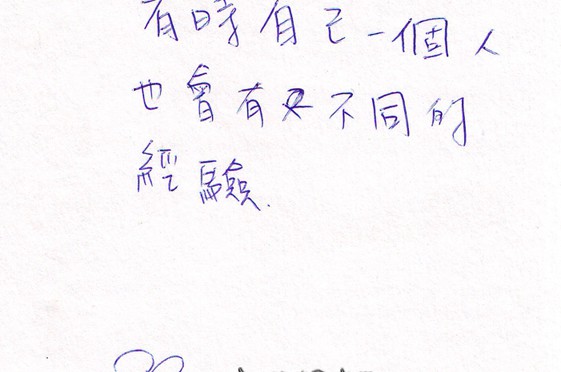 有時自己一個人
也會有不同的
經驗.